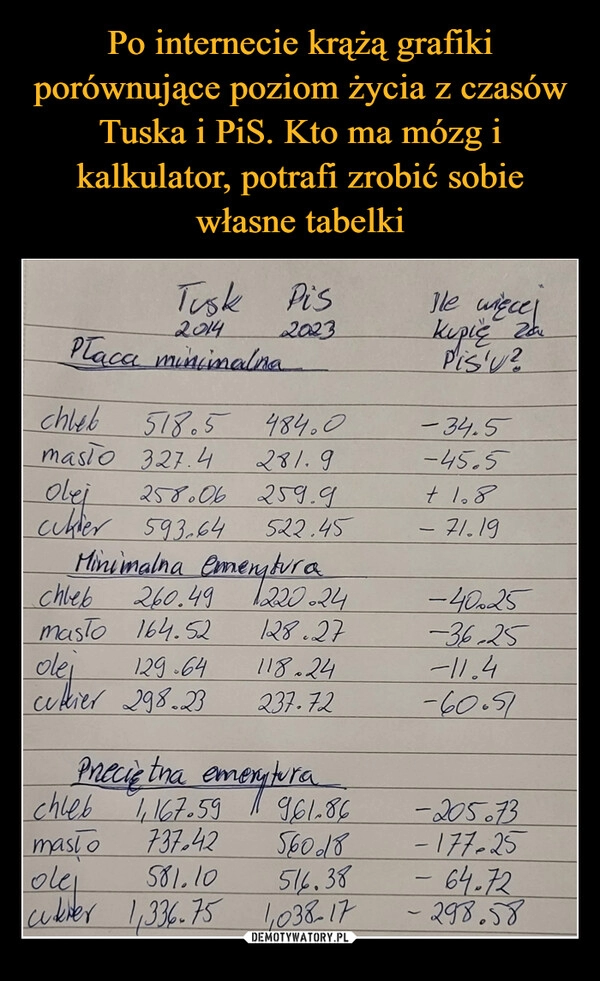 Po internecie krążą grafiki
porównujące poziom życia z czasów
Tuska i PiS. Kto ma mózg i
kalkulator, potrafi zrobić sobie
własne tabelki
Tusk PiS Ile więcej
2014 2023 kupię za
Płaca minimalna PiS'u?
chleb 518.5 484.0 -34.5
masło 327.4 281.9 -45.5
Olej 258.06 259.9 + 1.8
cukier 593.64 522.45 - 71.19
Minimalna emerytura
chleb 260.49 220.24 -40.25
masło 164.52 128.27 -36.25
olej 129.64 118.24 -11.4
cukier 298.23 237.72 -60.51
Przeciętna emerytura
chleb 1,167.59 961.86 -205.73
masło 737.42 560.18 -177.25
olej 581.10 516.38 - 64.72
cukier 1,336.75 1,038.17 - 298.58
DEMOTYWATORY.PL